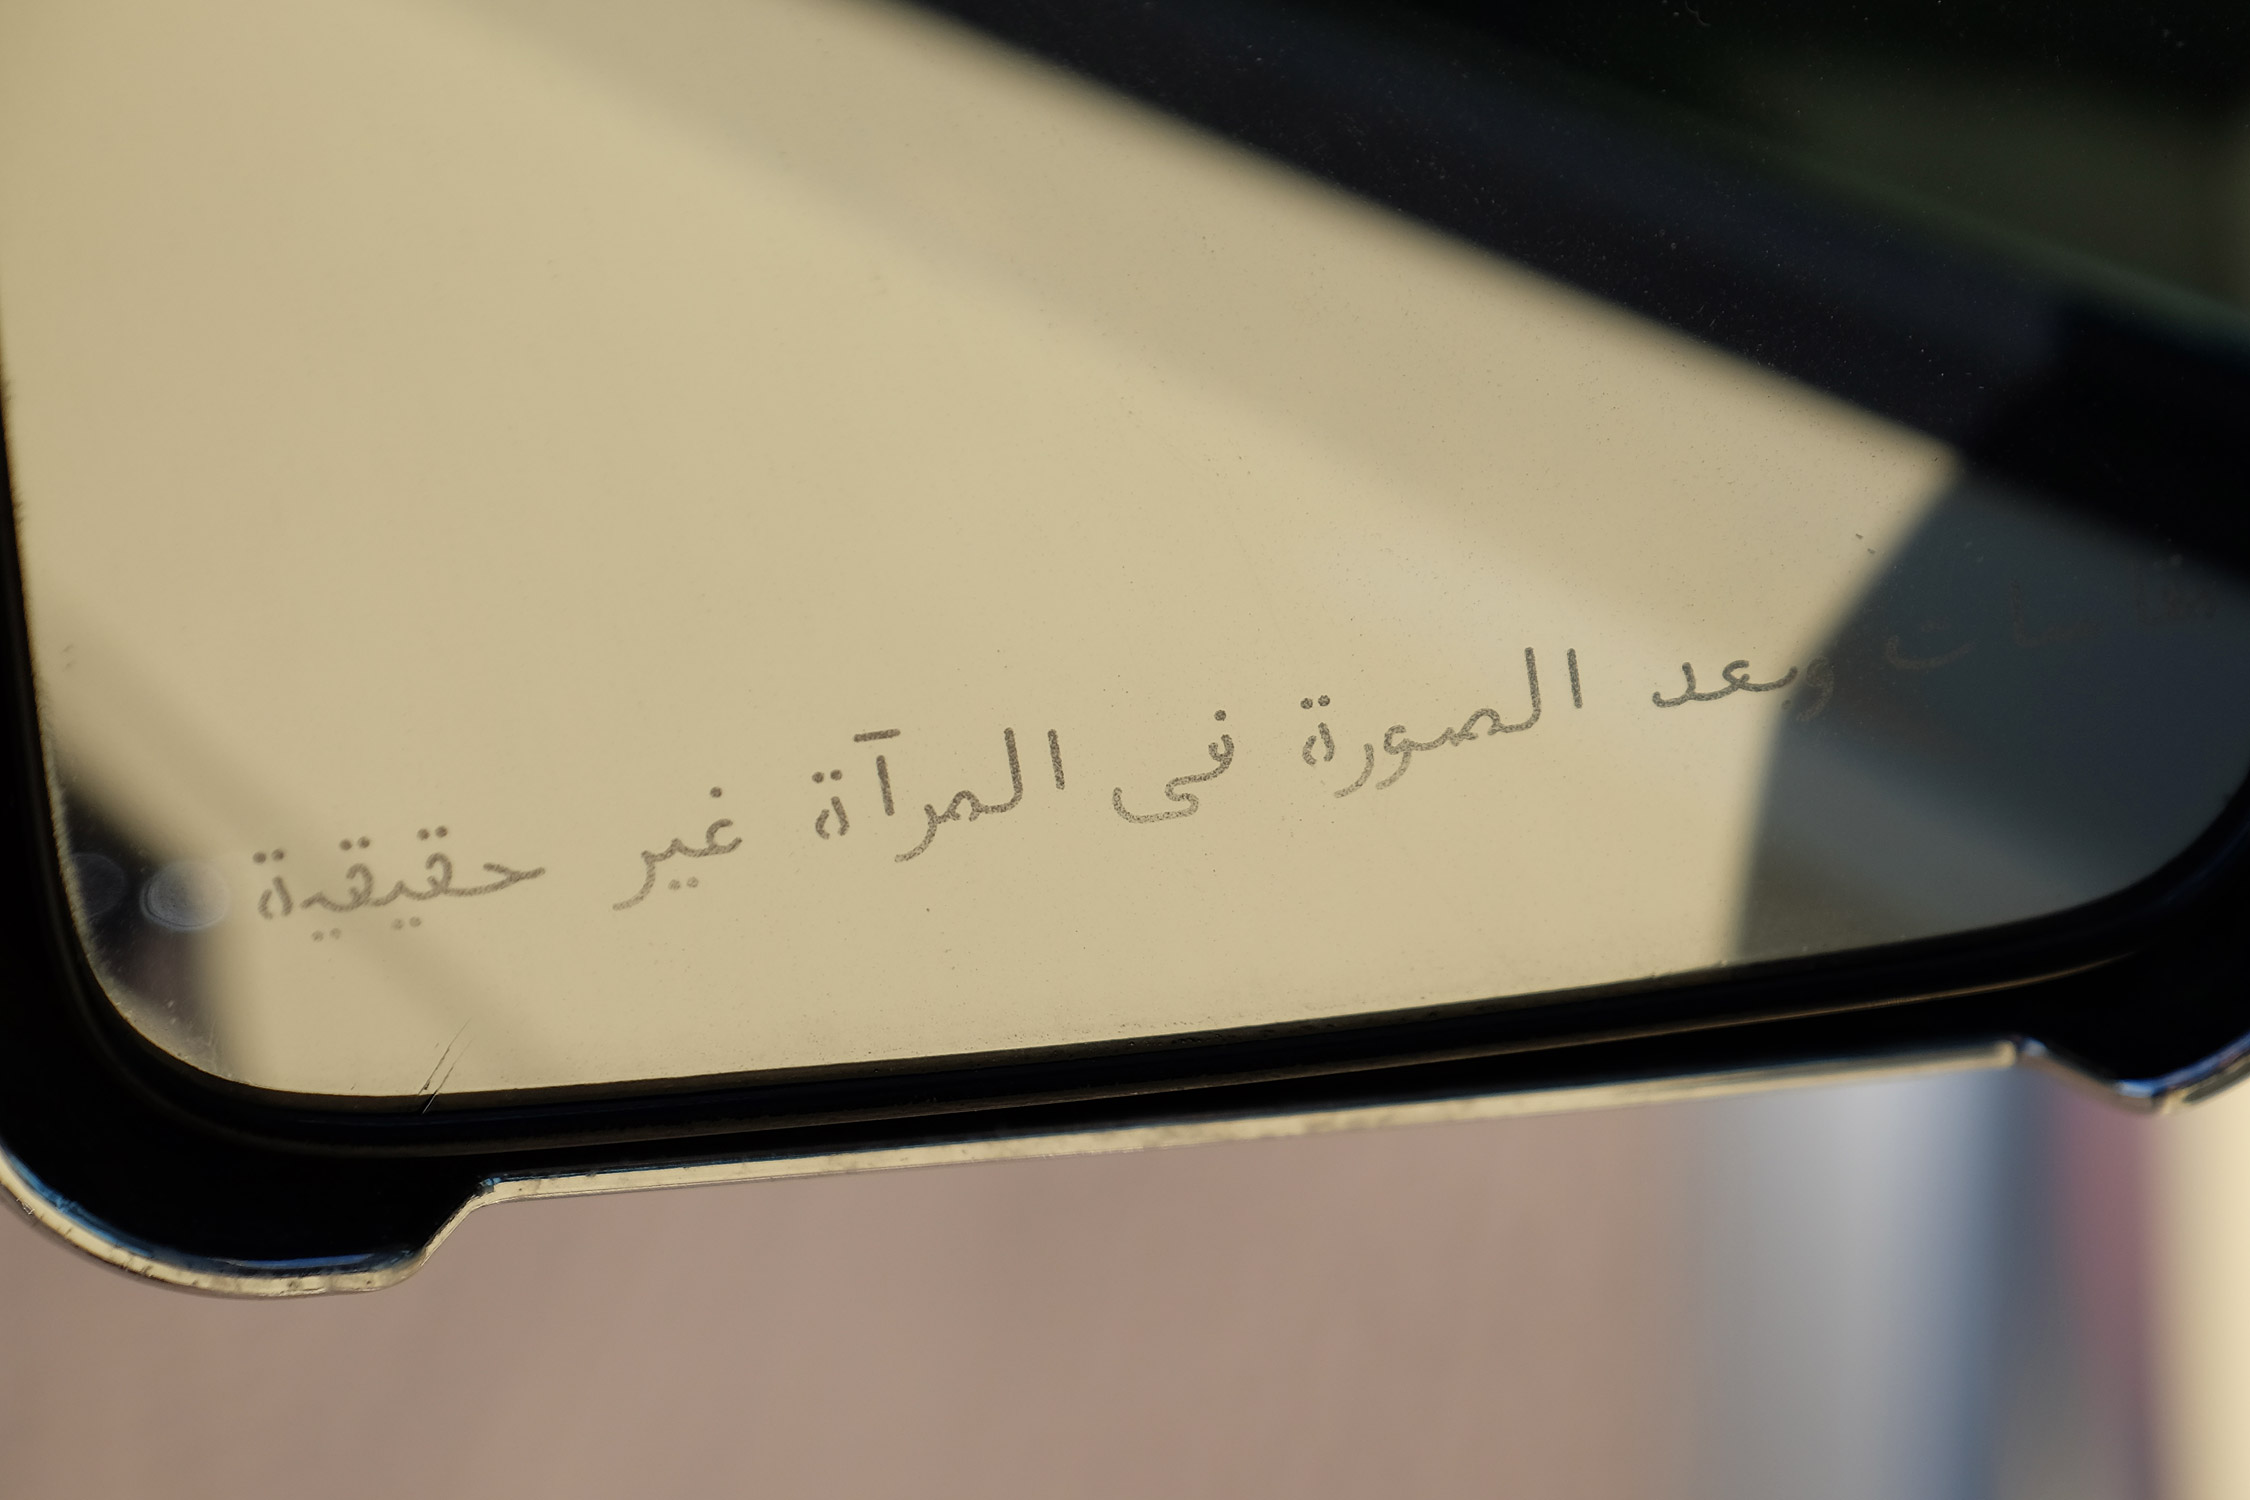 وبعد الصورة فى المرآة غير حقيقية